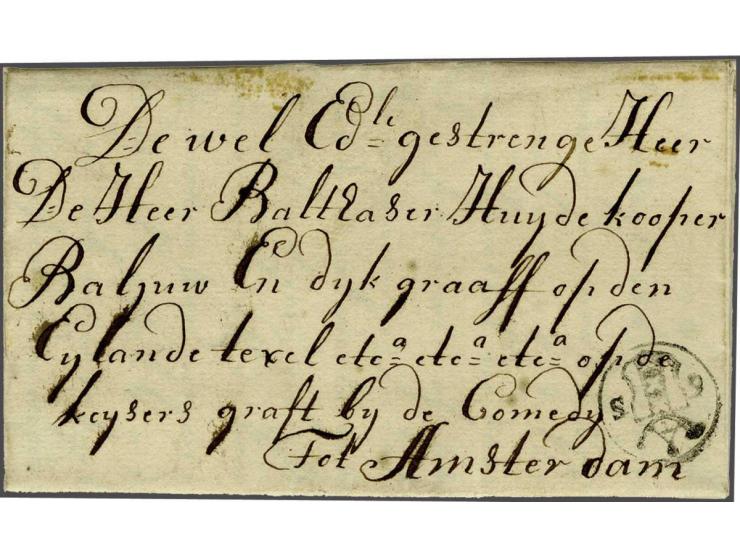 De wel Ed:le gestrenge Heer
De Heer Balthaser Huydekooper
Baljuw En dyk graaff op den
Eylande texel etca etca etca op de
keysers graft by de Comedy
Tot Amsterdam